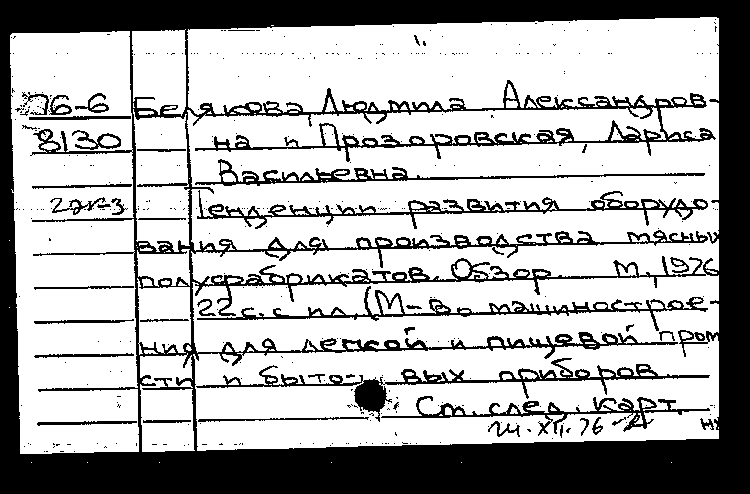 76-6 Белякова, Людмила Александров-
8130 на и Прозоровская, Лариса
Васильевна.
2 экз Тенденции развития оборудо-
вания для производства мясных
полуфабрикатов. Обзор. М., 1976
22 с. с ил. (М-во машинострое-
ния для легкой и пищевой пром
сти и быто- вых приборов
См. след. карт.
24.XII.76